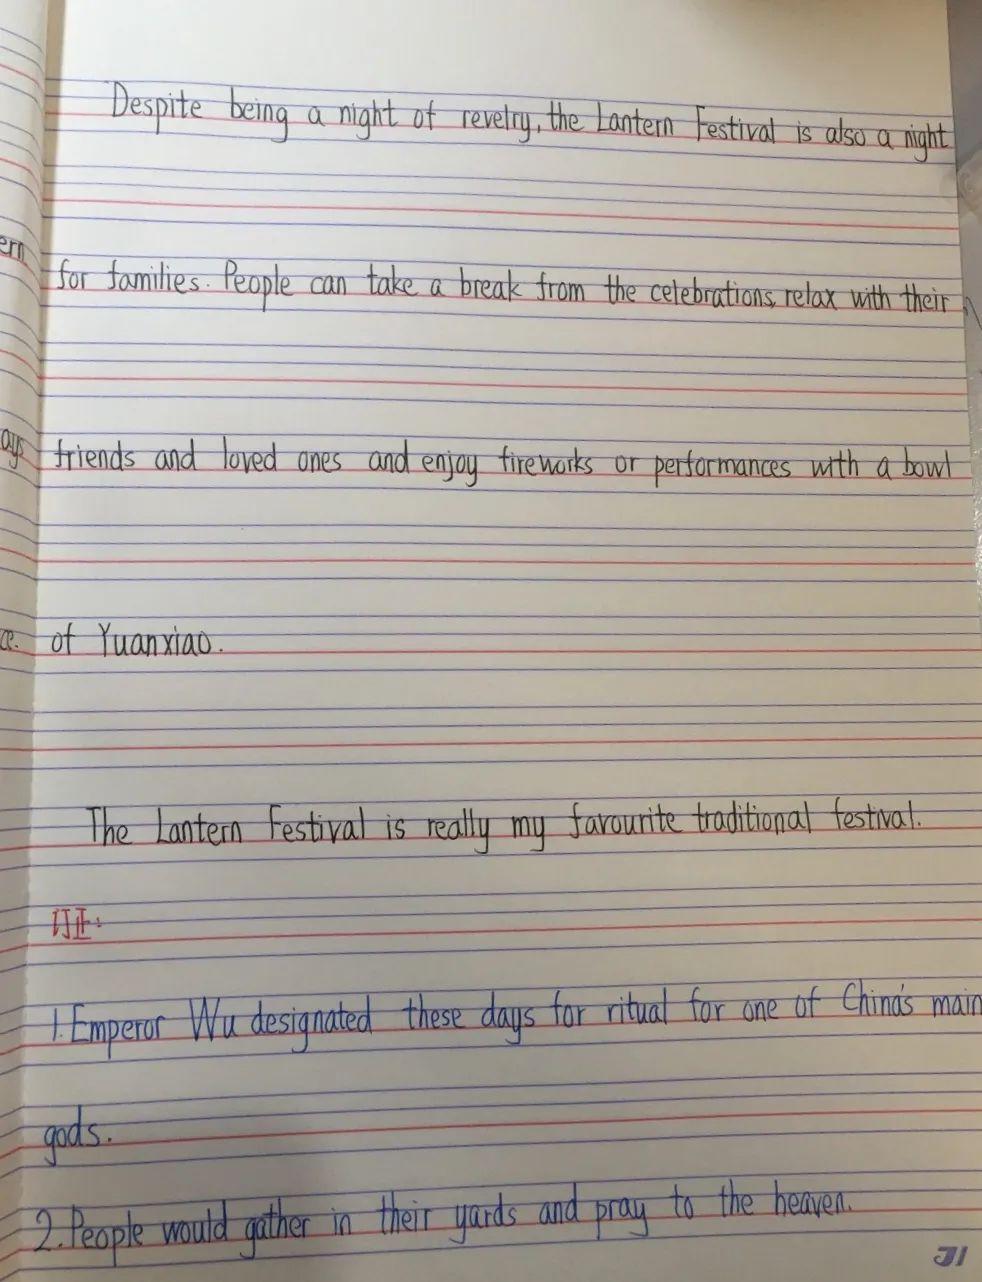 Despite being a night of revelry, the Lantern Festival is also a night
ern
for families. People can take a break from the celebrations, relax with their
ays
friends and loved ones and enjoy fireworks or performances with a bowl
ce.
of Yuanxiao.
The Lantern Festival is really my favourite traditional festival.
订正:
1. Emperor Wu designated these days for ritual for one of China's main
gods.
2. People would gather in their yards and pray to the heaven.